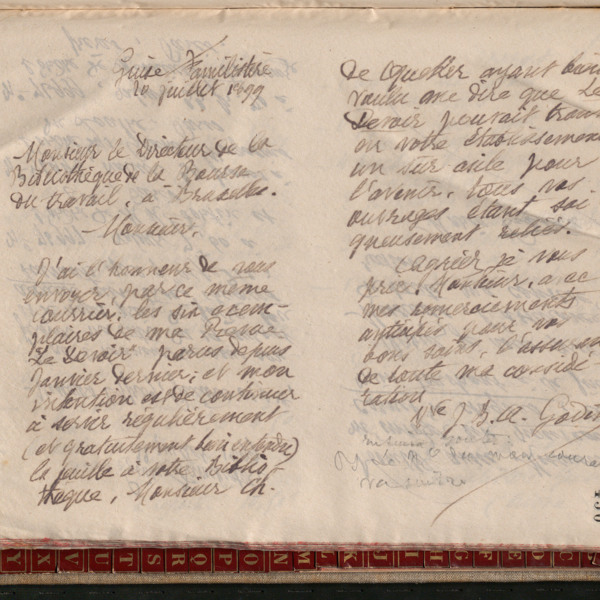 Guise Familistère
20 juillet 1899
Monsieur le Directeur de la
Bibliothèque de la Bourse
du travail, à Bruxelles.
Monsieur,
J'ai l'honneur de vous
envoyer, par ce même
courrier, les six exem-
plaires de ma Revue
Le Devoir parus depuis
Janvier dernier; et mon
intention est de continuer
à servir régulièrement
(et gratuitement bien entendu)
la feuille à votre Biblio-
thèque, Monsieur Ch.
de Quéker ayant bien
voulu me dire que Le
Devoir pouvait
en votre établissement
un sûr asile pour
l'avenir, tous vos
ouvrages étant soi-
gneusement reliés.
Agréer, je vous
prie, Monsieur, avec
mes remerciements
anticipés pour vos
bons soins,
de toute ma considé-
ration
Vve J. B. A. Godin
Y X V U T S R Q P O N M L K J I H G F E D C